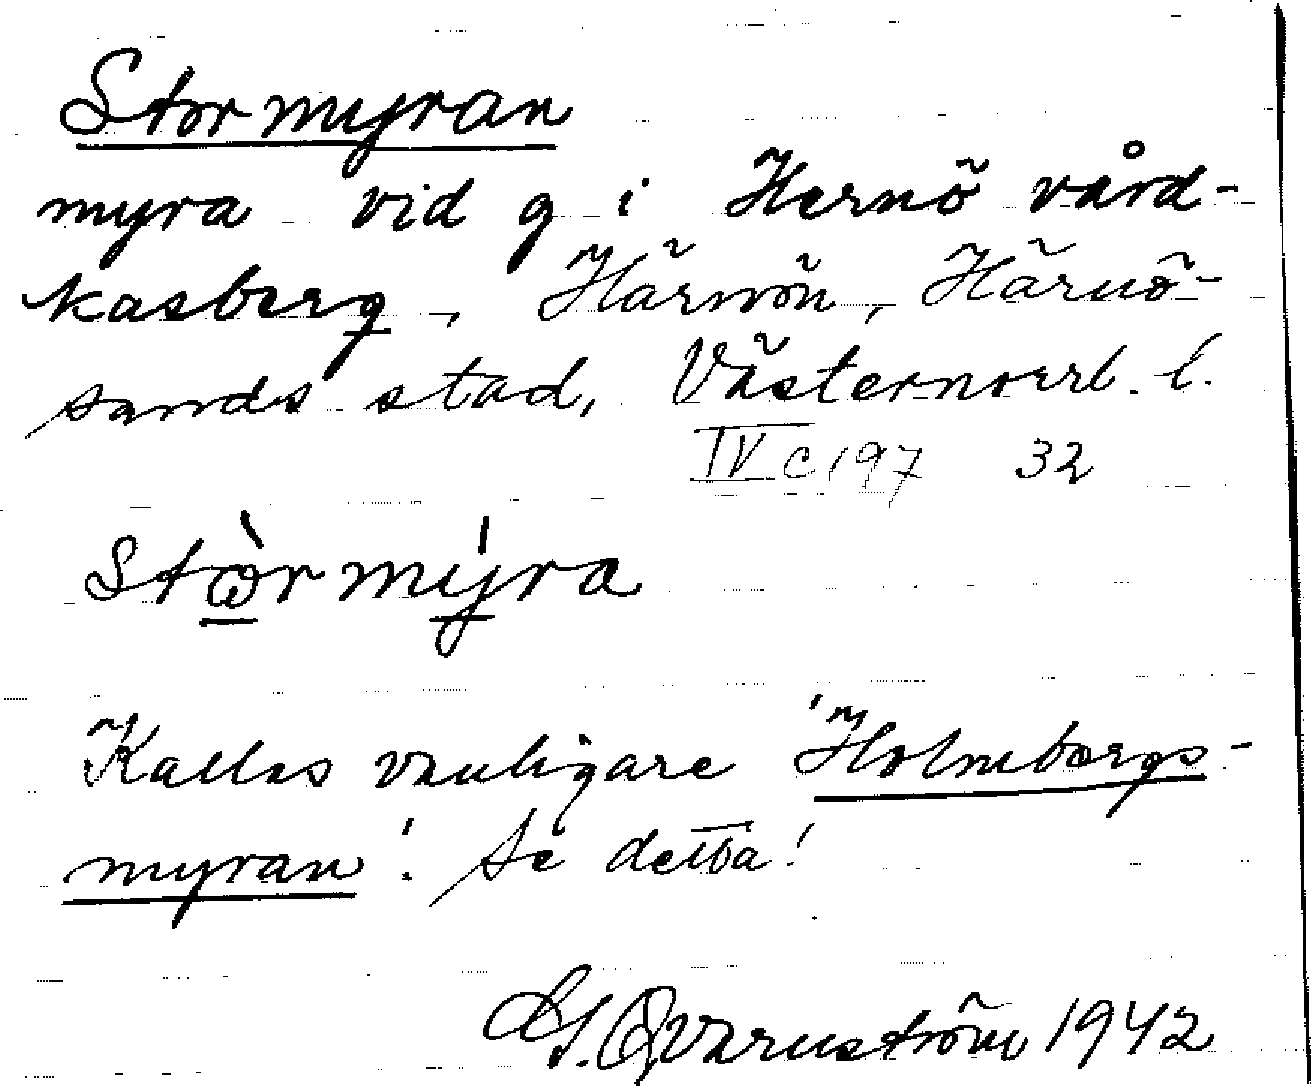 Stormyran
myra vid g i Hernö vård-
kasberg, Härnön, Härnö-
sands stad, Västernorrl. l.
IV c 197 32
Stòrmýra
Kallas vanligare 'Holmbergs-
myran'. Se detta!
Qvarnström 1942